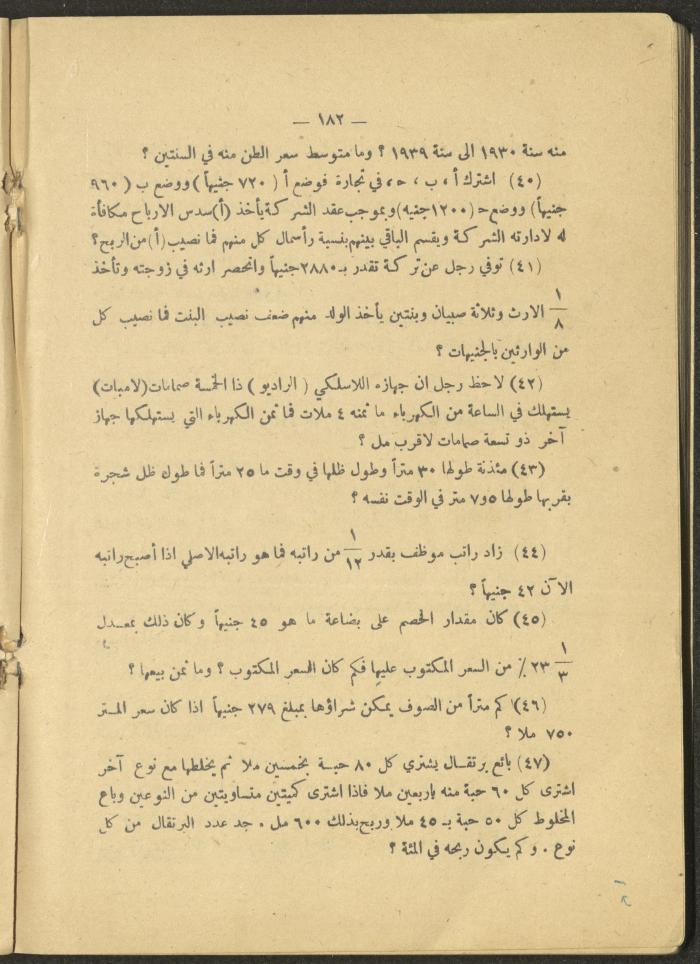 — ١٨٢ —
منه سنة ١٩٣٠ الى سنة ١٩٣٩ ؟ وما متوسط سعر الطن منه في السنتين ؟
(٤٠) اشترك أ ، ب ، ح ، في تجارة فوضع أ ( ٧٢٠ جنيهاً ) ووضع ب ( ٩٦٠
جنيهاً ) ووضع ح ( ١٢٠٠ جنيه ) وبموجب عقد الشركة يأخذ (أ) سدس الارباح مكافأة
له لادارته الشركة ويقسم الباقي بينهم بنسبة رأسمال كل منهم فما نصيب (أ) من الربح ؟
(٤١) توفي رجل عن تركة تقدر بـ ٢٨٨٠ جنيهاً وانحصر ارثه في زوجته وتأخذ
١/٨ الارث وثلاثة صبيان وبنتين يأخذ الولد منهم ضعف نصيب البنت فما نصيب كل
من الوارثين بالجنيهات ؟
(٤٢) لاحظ رجل ان جهازه اللاسلكي ( الراديو ) ذا الخمسة صمامات (لامبات)
يستهلك في الساعة من الكهرباء ما ثمنه ٤ ملات فما ثمن الكهرباء التي يستهلكها جهاز
آخر ذو تسعة صمامات لاقرب مل ؟
(٤٣) مئذنة طولها ٣٠ متراً وطول ظلها في وقت ما ٢٥ متراً فما طول ظل شجرة
بقربها طولها ٧٫٥ متر في الوقت نفسه ؟
(٤٤) زاد راتب موظف بقدر ١/١٢ من راتبه فما هو راتبه الاصلي اذا أصبح راتبه
الآن ٤٢ جنيهاً ؟
(٤٥) كان مقدار الخصم على بضاعة ما هو ٤٥ جنيهاً وكان ذلك بمعدل
١/٣ ٢٣ ٪ من السعر المكتوب عليها فكم كان السعر المكتوب ؟ وما ثمن بيعها ؟
(٤٦) كم متراً من الصوف يمكن شراؤها بمبلغ ٢٧٩ جنيهاً اذا كان سعر المتر
٧٥٠ ملا ؟
(٤٧) بائع برتقال يشتري كل ٨٠ حبة بخمسين ملا ثم يخلطها مع نوع آخر
اشترى كل ٦٠ حبة منه باربعين ملا فاذا اشترى كميتين متساويتين من النوعين وباع
المخلوط كل ٥٠ حبة بـ ٤٥ ملا وربح بذلك ٦٠٠ مل . جد عدد البرتقال من كل
نوع . وكم يكون ربحه في المئة ؟